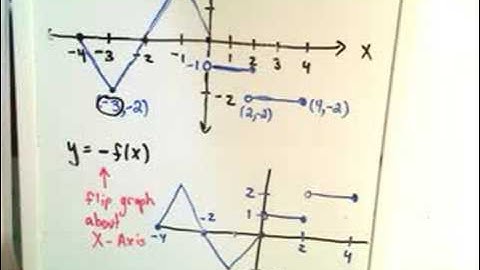 -4 -3 -2 -1 1 2 3 4 X
-1
-2
(-3,-2) (2,-2) (4,-2)
y = -f(x)
flip graph
about
X-Axis
2
1
-4 -2 2 4